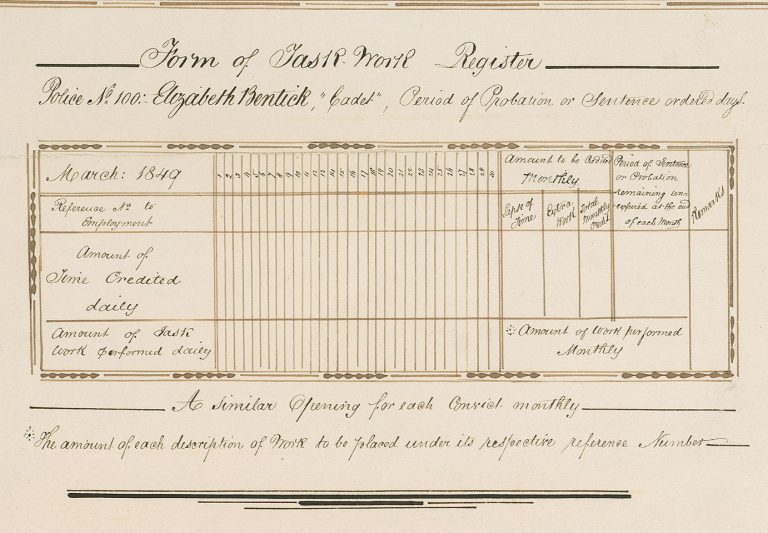 Form of Task-Work Register
Police No. 100:- Elizabeth Bentick, "Cadet", Period of Probation or Sentence ordered days.
March: 1849
1 2 3 4 5 6 7 8 9 10 11 12 13 14 15 16 17 18 19 20 21 22 23 24 25 26 27 28 29
Amount to be Added
Monthly
Lapse of
Time
Extra
Work
Total
Monthly
Credit
Period of Sentence
or Probation
remaining un-
expired at the end
of each Month
Remarks
Reference No. to
Employment
Amount of
Time Credited
daily
Amount of Task
Work performed daily
Amount of Work performed
Monthly
A similar Opening for each Convict monthly
The amount of each description of Work to be placed under its respective reference Number